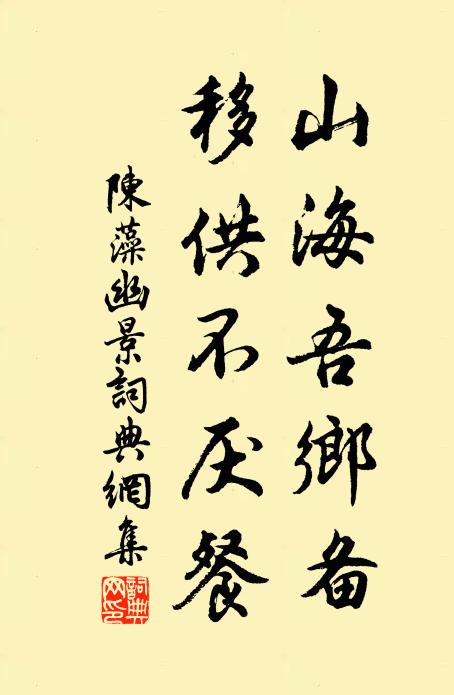 山海吾鄉备
移供不厌餐
陳藻幽景詞典網集
詞典网印